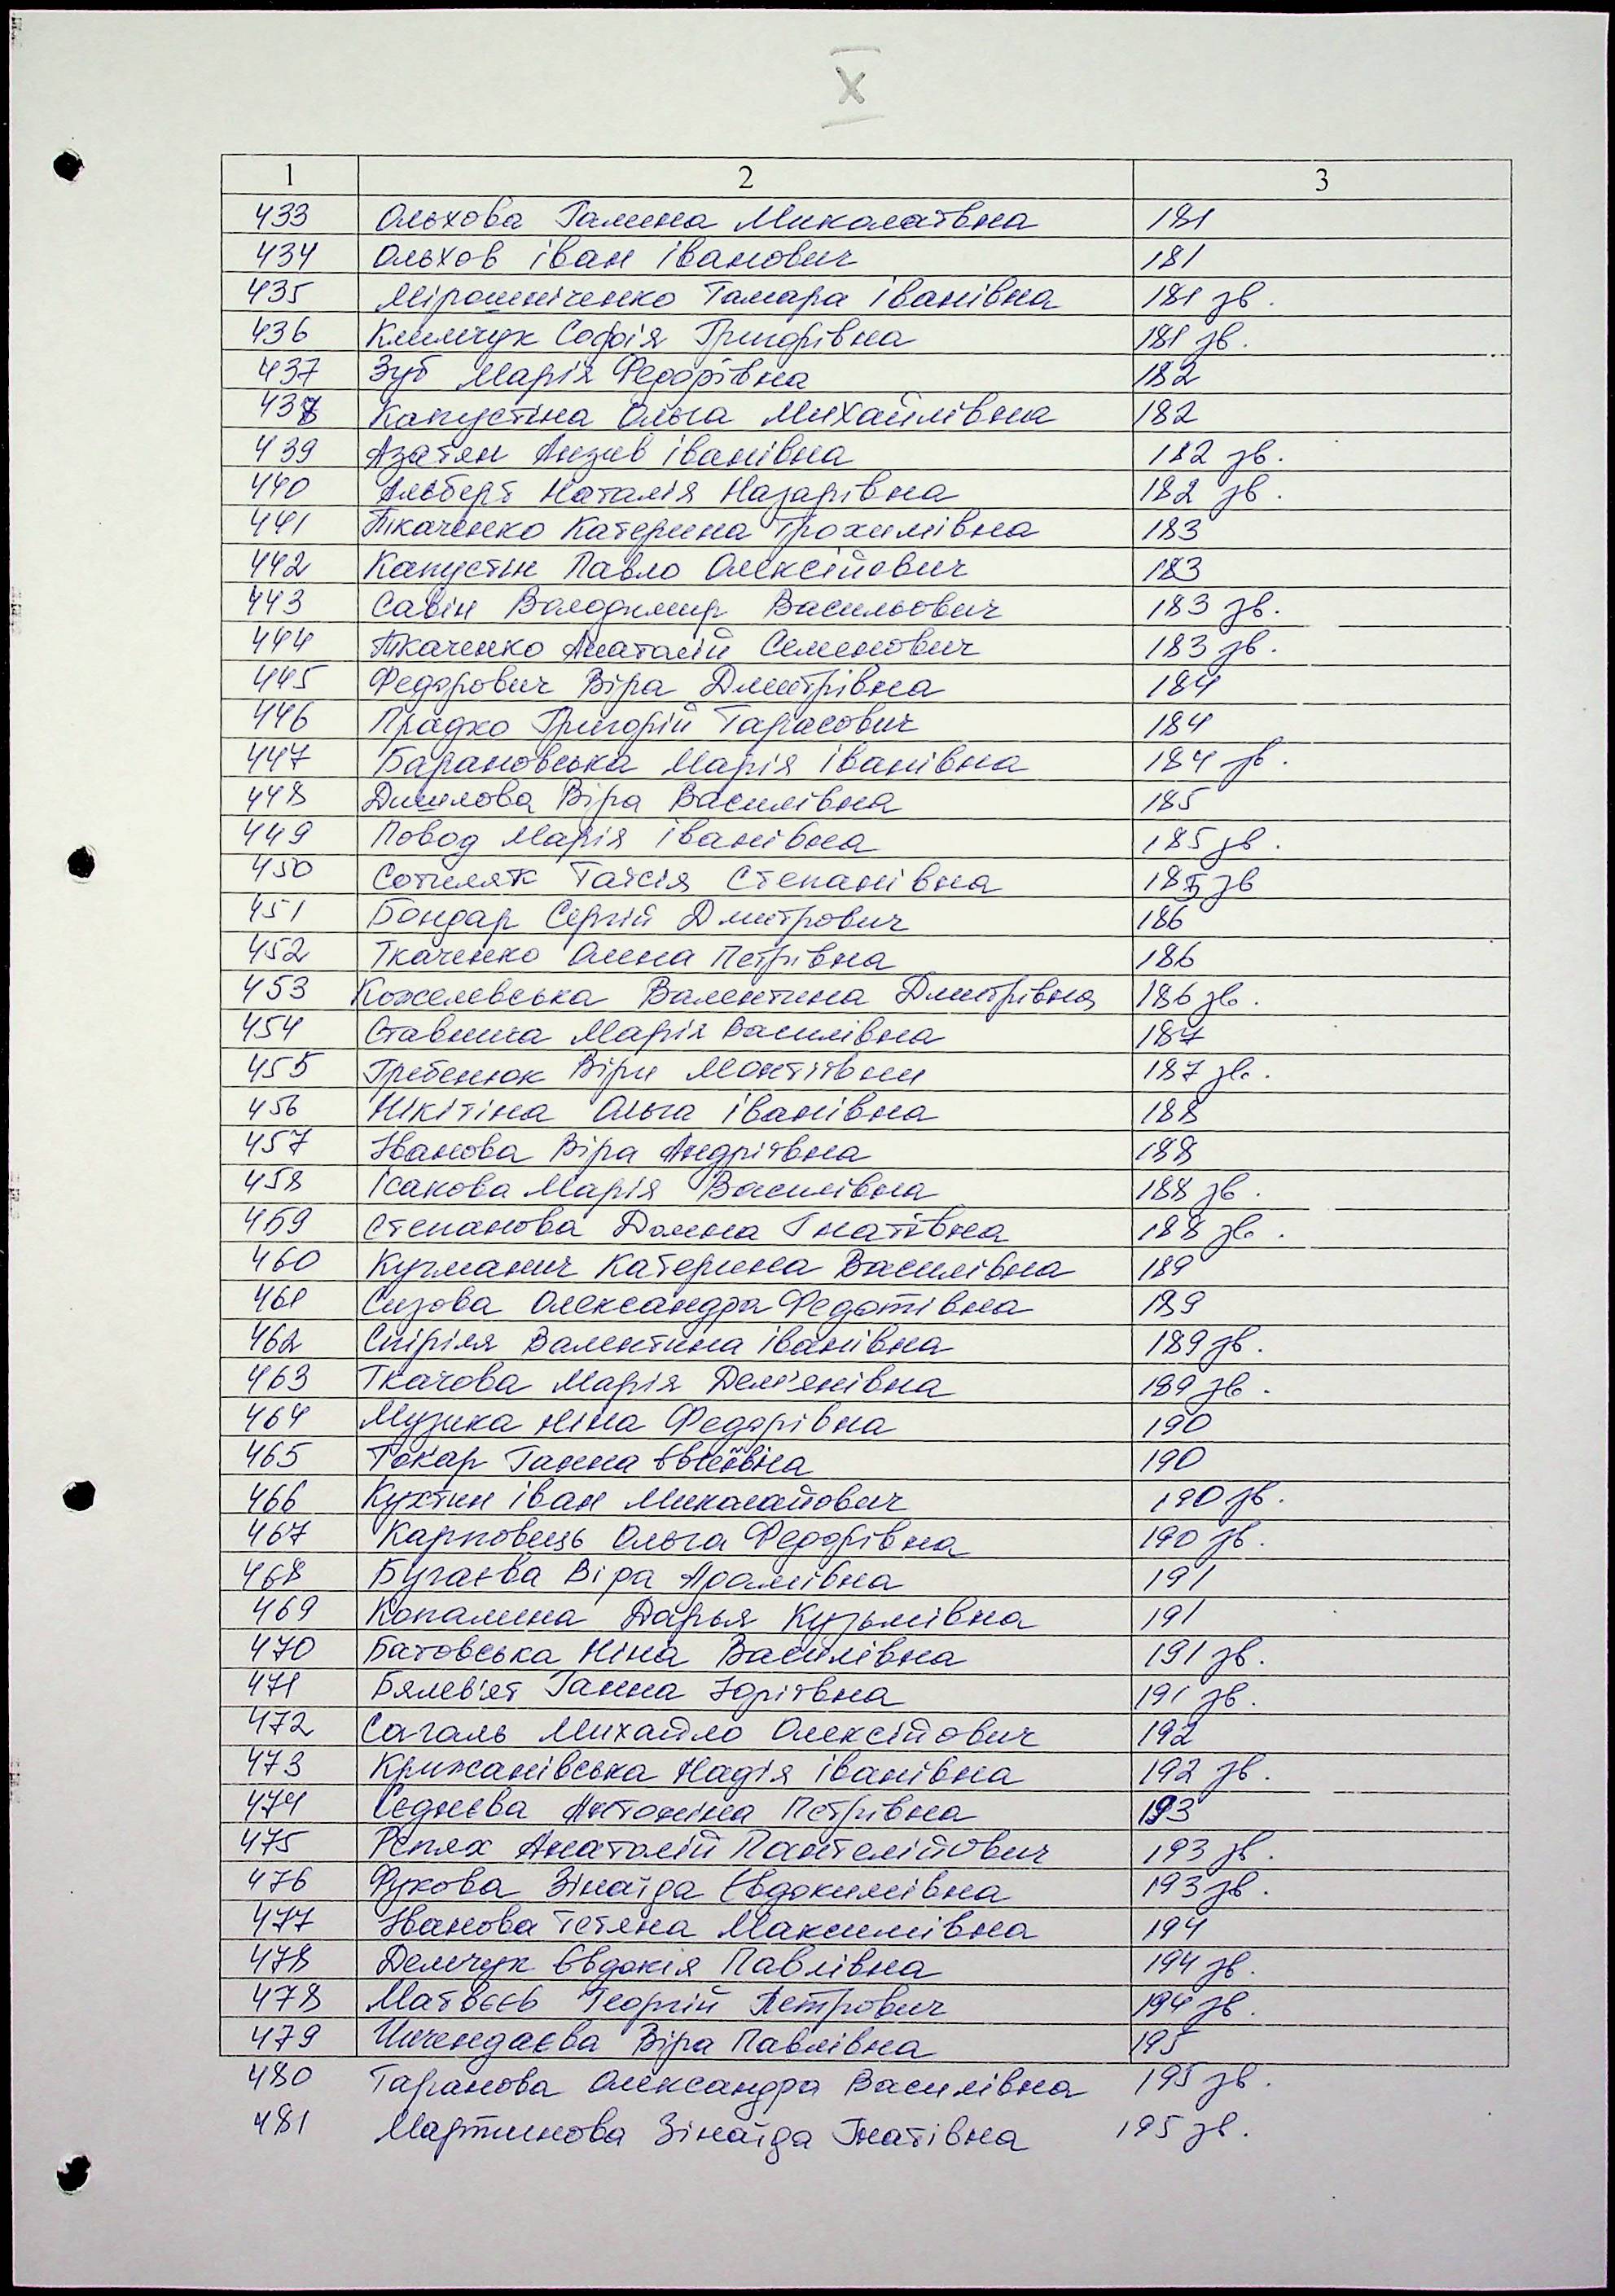 X
1 2 3
433 Ольхова Галина Миколаївна 181
434 Ольхов Іван Іванович 181
435 Мірошніченко Тамара Іванівна 181 зв.
436 Климчук Софія Григорівна 181 зв.
437 Зуб Марія Федорівна 182
438 Капустіна Ольга Михайлівна 182
439 Азатян Іванівна 182 зв.
440 Альберт Наталія Назарівна 182 зв.
441 Ткаченко Катерина Трохимівна 183
442 Капустін Павло Олексійович 183
443 Савін Володимир Васильович 183 зв.
444 Ткаченко Анатолій Семенович 183 зв.
445 Федорович Віра Дмитрівна 184
446 Прадко Григорій Тарасович 184
447 Барановська Марія Іванівна 184 зв.
448 Віра Василівна 185
449 Повод Марія Іванівна 185 зв.
450 Таїсія Степанівна 185 зв
451 Бондар Сергій Дмитрович 186
452 Ткаченко Олена Петрівна 186
453 Кожелевська Валентина Дмитрівна 186 зв.
454 Ставнича Марія Василівна 187
455 Гребенюк Віри 187 зв.
456 Нікітіна Ольга Іванівна 188
457 Іванова Віра Андріївна 188
458 Ісакова Марія Василівна 188 зв.
459 Степанова Домна Гнатівна 188 зв.
460 Кузманич Катерина Василівна 189
461 Сизова Олександра Федотівна 189
462 Спіріля Валентина Іванівна 189 зв.
463 Ткачова Марія Дем'янівна 189 зв.
464 Музика Ніна Федорівна 190
465 Токар Ганна 190
466 Кухтин Іван Миколайович 190 зв.
467 Карповець Ольга Федорівна 190 зв.
468 Бугаєва Віра Адамівна 191
469 Копалина Дарья Кузьмівна 191
470 Батовська Ніна Василівна 191 зв.
471 Ганна Юріївна 191 зв.
472 Сагаль Михайло Олексійович 192
473 Крижанівська Надія Іванівна 192 зв.
474 Седнєва Антоніна Петрівна 193
475 Репях Анатолій Пантелійович 193 зв.
476 Зінаїда Євдокимівна 193 зв.
477 Іванова Тетяна Максимівна 194
478 Демчук Євдокія Павлівна 194 зв.
478 Матвєєв Георгій Петрович 194 зв.
479 Віра Павлівна 195
480 Таранова Олександра Василівна 195 зв.
481 Мартинова Зінаїда Гнатівна 195 зв.